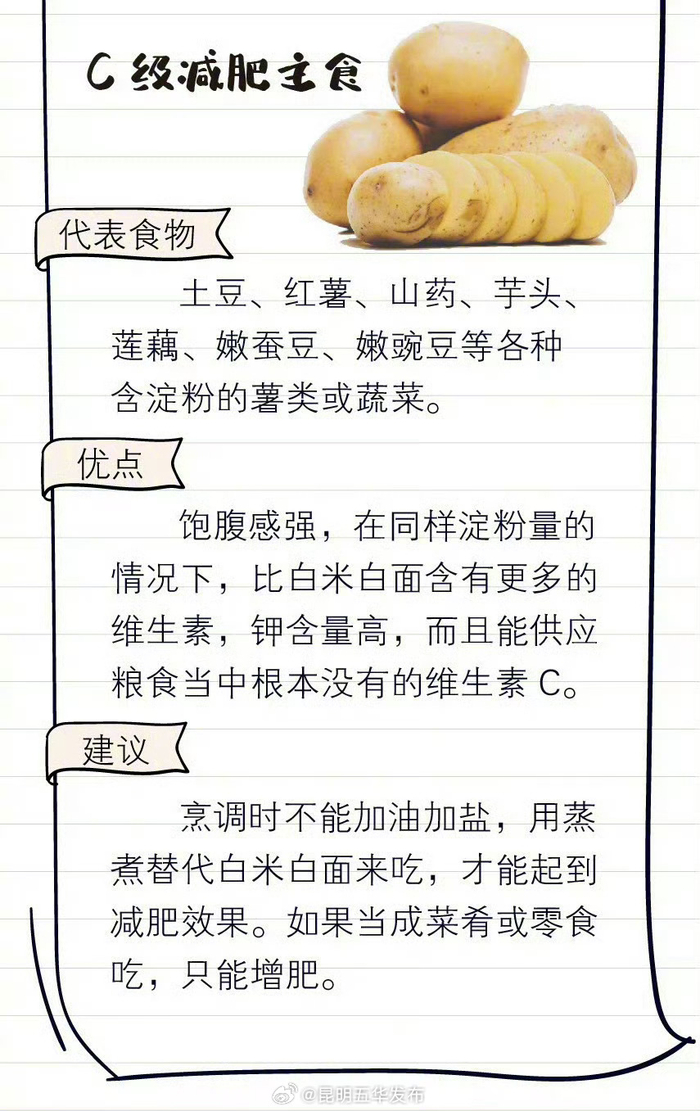 C 级减肥主食
代表食物
土豆、红薯、山药、芋头、
莲藕、嫩蚕豆、嫩豌豆等各种
含淀粉的薯类或蔬菜。
优点
饱腹感强，在同样淀粉量的
情况下，比白米白面含有更多的
维生素，钾含量高，而且能供应
粮食当中根本没有的维生素 C。
建议
烹调时不能加油加盐，用蒸
煮替代白米白面来吃，才能起到
减肥效果。如果当成菜肴或零食
吃，只能增肥。
@昆明五华发布